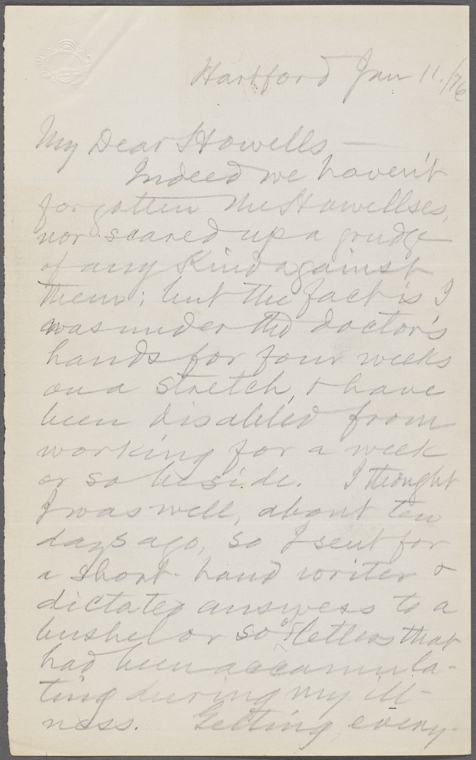 Hartford Jan 11./76
My Dear Howells —
Indeed we haven't
forgotten the Howellses,
nor scared up a grudge
of any kind against
them; but the fact is I
was under the doctor's
hands for four weeks
on a stretch, & have
been disabled from
working for a week
or so beside. I thought
I was well, about ten
days ago, so I sent for
a short-hand writer &
dictated answers to a
bushel or so of letters that
had been accumula-
ting during my ill-
ness. Getting every-